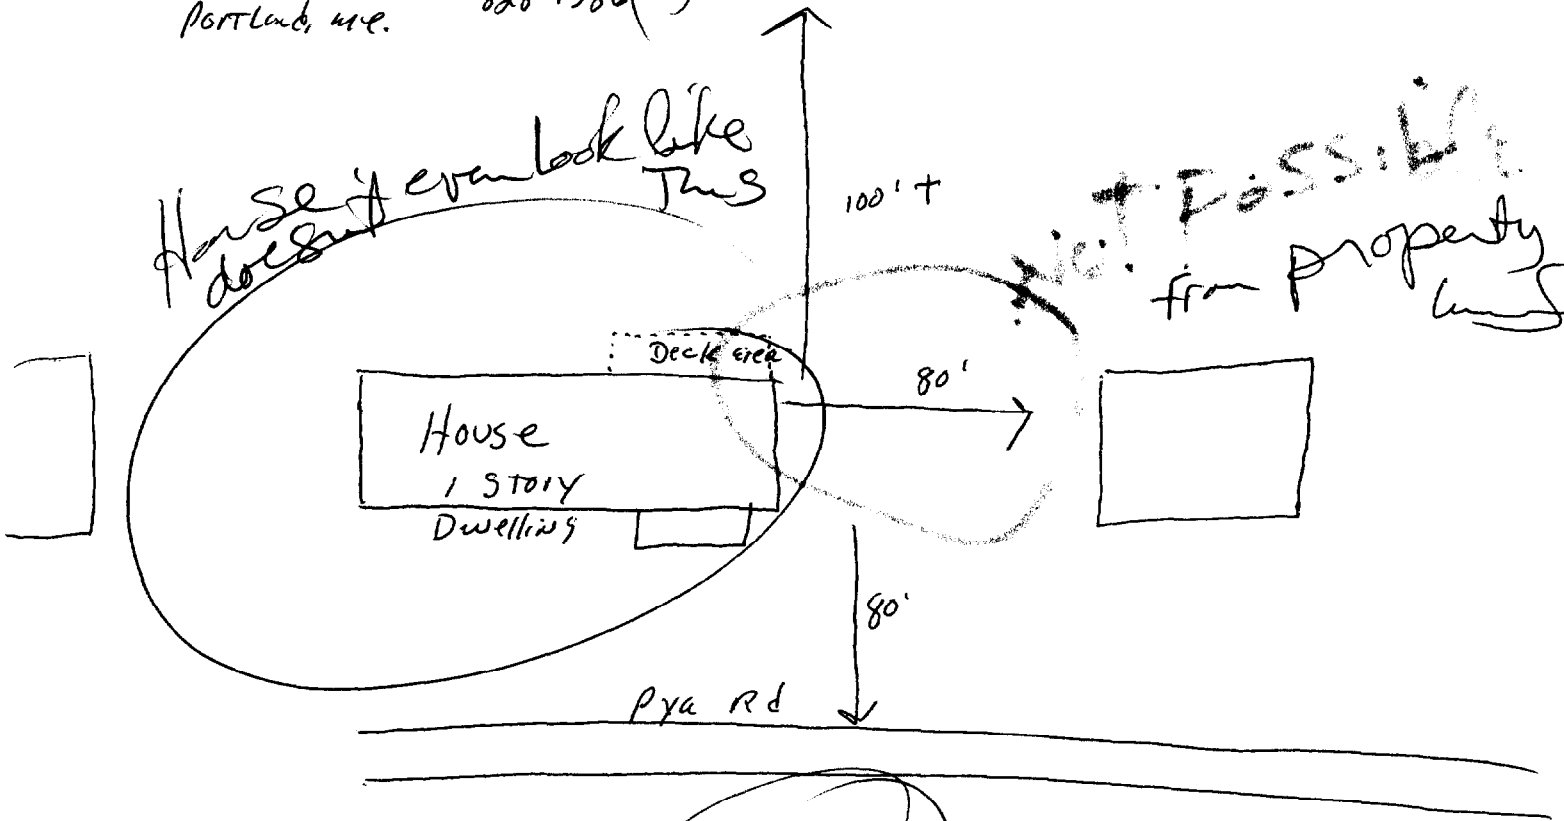 Portland, me.
House doesn't even look like
This
100'+
Not Possible
from property
Deck area
80'
House
1 STORY
Dwelling
80'
Pya Rd